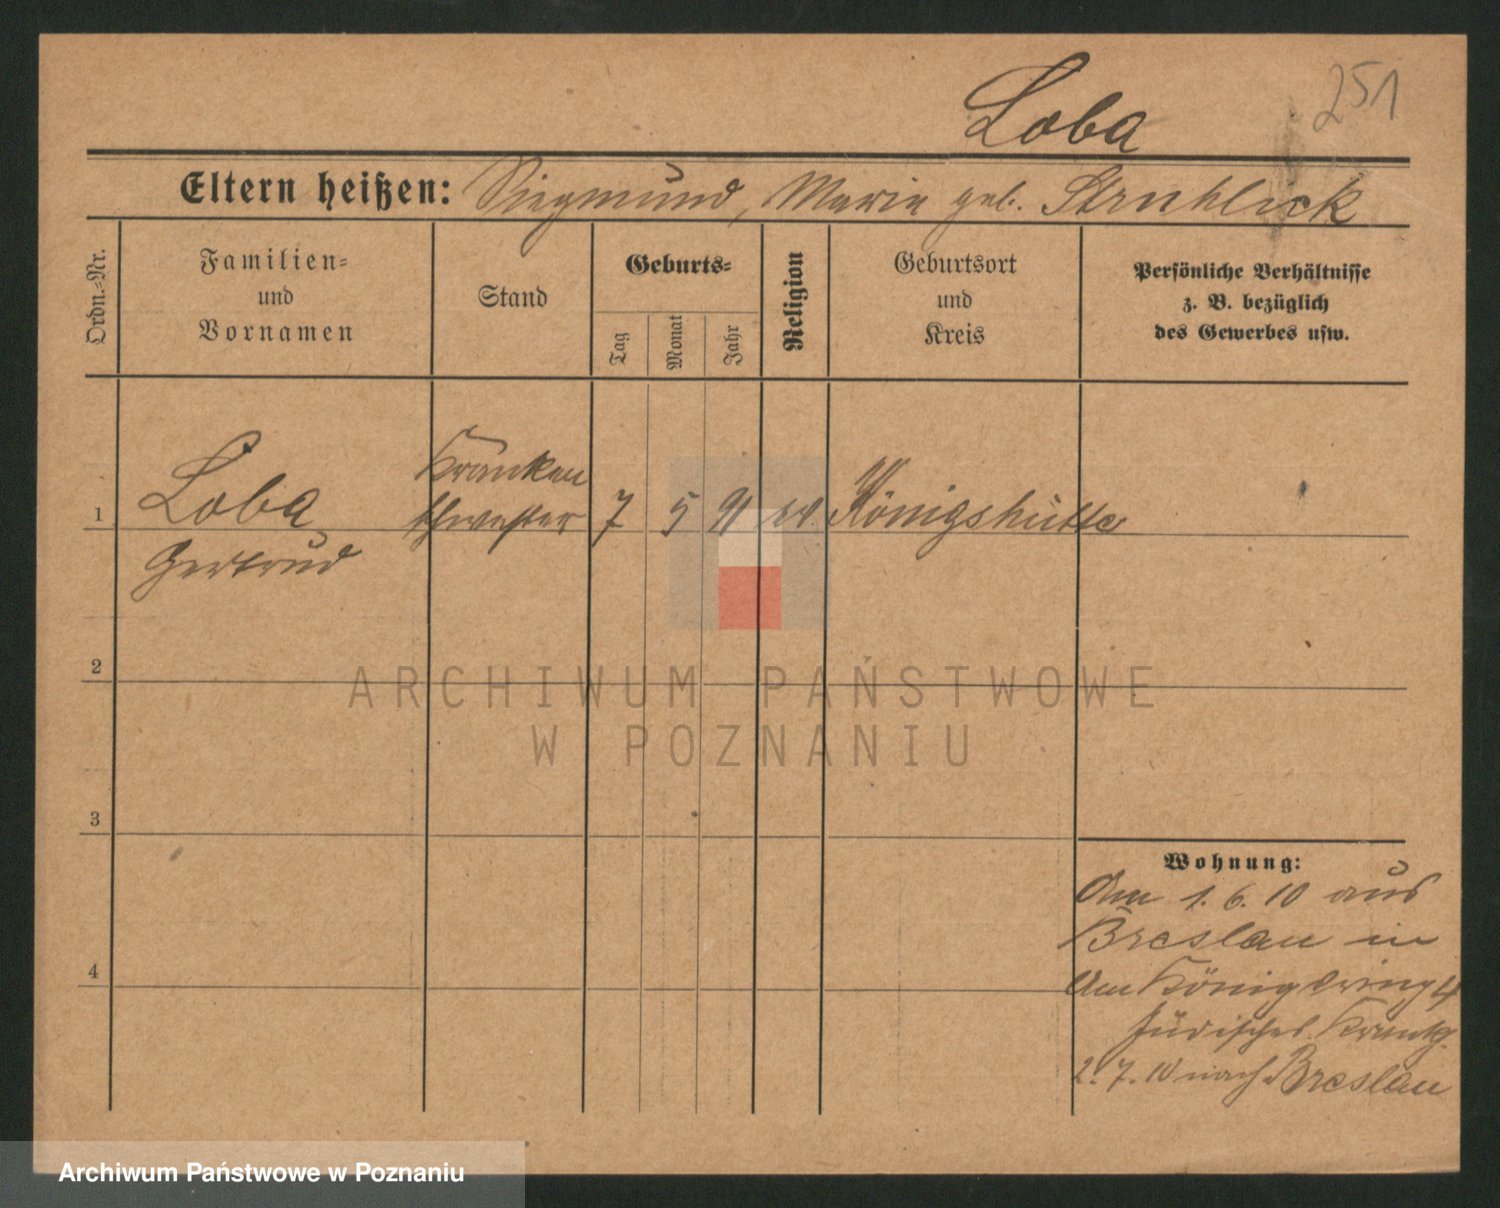 Loba
251
Eltern heißen: Siegmund, Marie geb. Struhlick
Ordn.=Nr.
Familien=
und
Vornamen
Stand
Geburts=
Tag
Monat
Jahr
Religion
Geburtsort
und
Kreis
Persönliche Verhältnisse
z. B. bezüglich
des Gewerbes usw.
1
Loba
Gertrud
Kranken
schwester
7
5
91
Königshütte
2
3
4
Wohnung:
Am 1. 6. 10 aus
Breslau in
Am Königsring 4
Jüdisches Krankh.
2. 7. 10 nach Breslau
ARCHIWUM PAŃSTWOWE
W POZNANIU
Archiwum Państwowe w Poznaniu